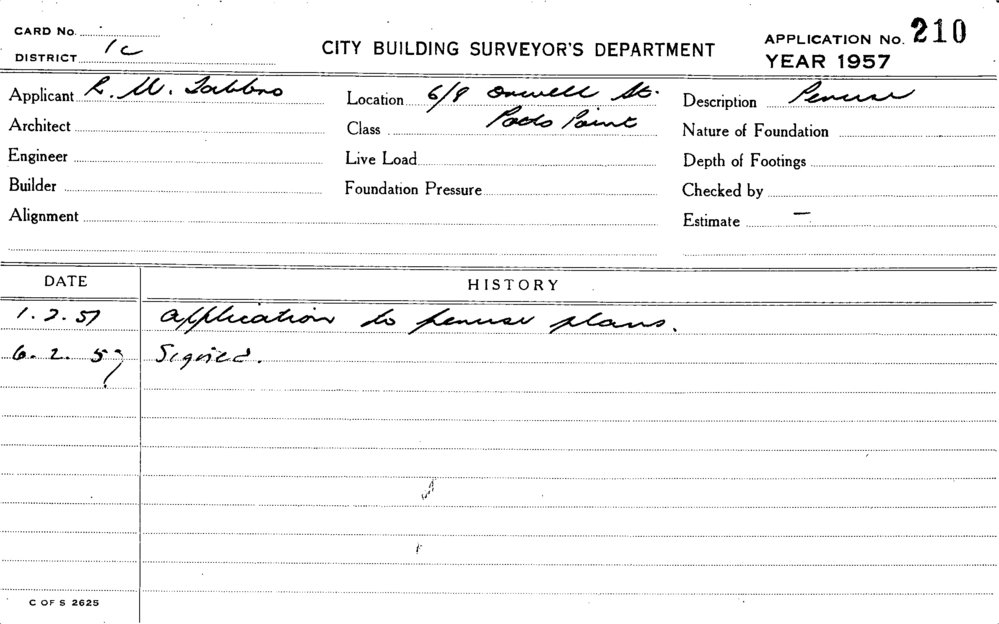 CARD No.
DISTRICT 1c
CITY BUILDING SURVEYOR'S DEPARTMENT
APPLICATION No. 210
YEAR 1957
Applicant R. M.
Location 6/8 Orwell St.
Description Peruse
Architect
Class Potts Point
Nature of Foundation
Engineer
Live Load
Depth of Footings
Builder
Foundation Pressure
Checked by
Alignment
Estimate —
DATE
HISTORY
1.2.57 application to peruse plans.
6.2.57 Signed.
C OF S 2625